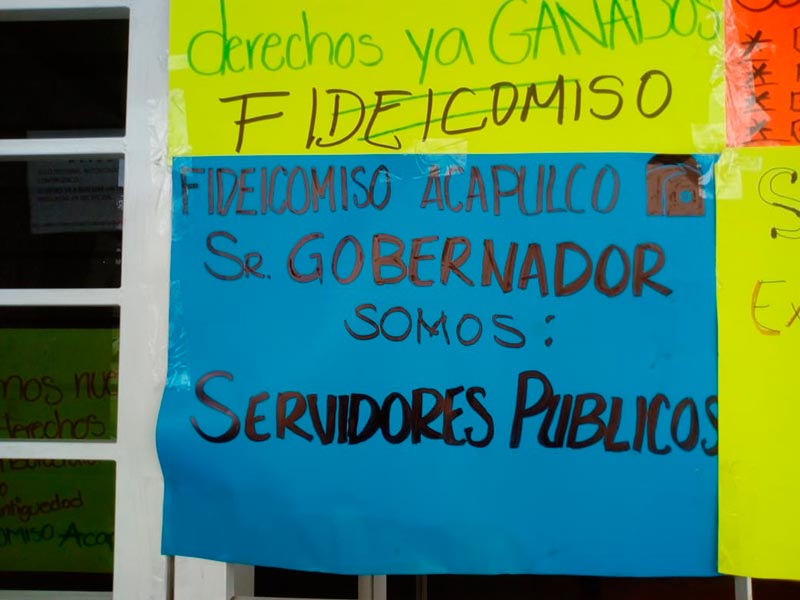 derechos ya GANADOS
FIDEICOMISO
FIDEICOMISO ACAPULCO
SR. GOBERNADOR
SOMOS:
SERVIDORES PUBLICOS
derechos
ntiguedad
OMISO Acap